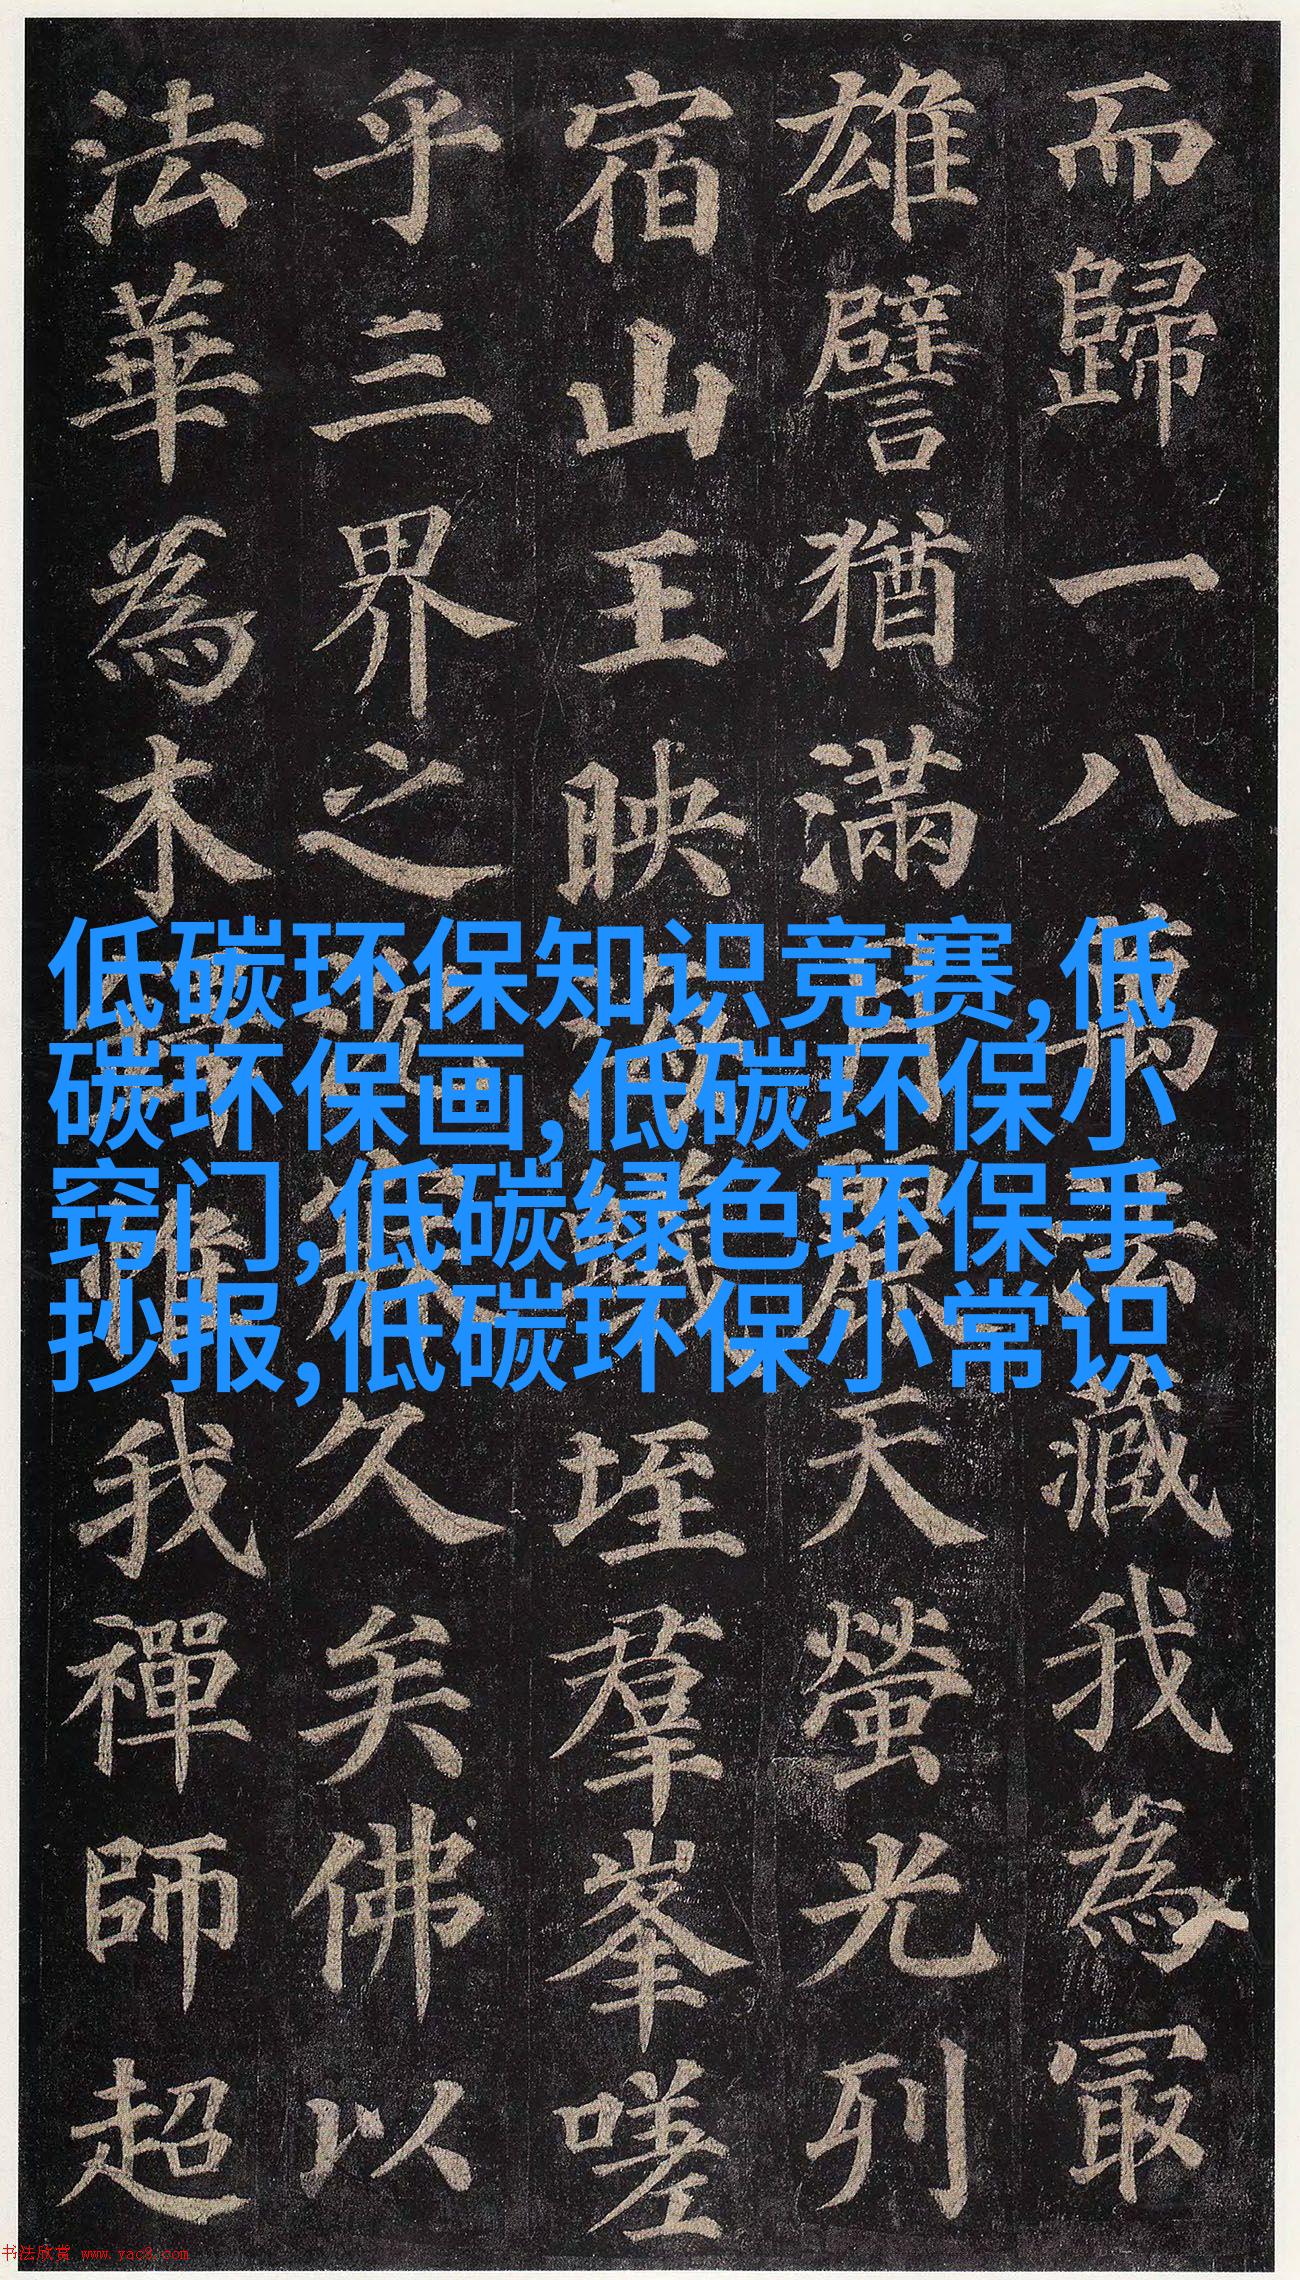 而歸一八萬法藏我為冣
雄譬猶滿月麗天螢光列
宿山王映海蟻垤羣峯嗟
乎三界之沉寐久矣佛以
法華為木鐸惟我禪師超
低碳环保知识竞赛,低
碳环保画,低碳环保小
窍门,低碳绿色环保手
抄报,低碳环保小常识
书法欣赏 www.yac8.com